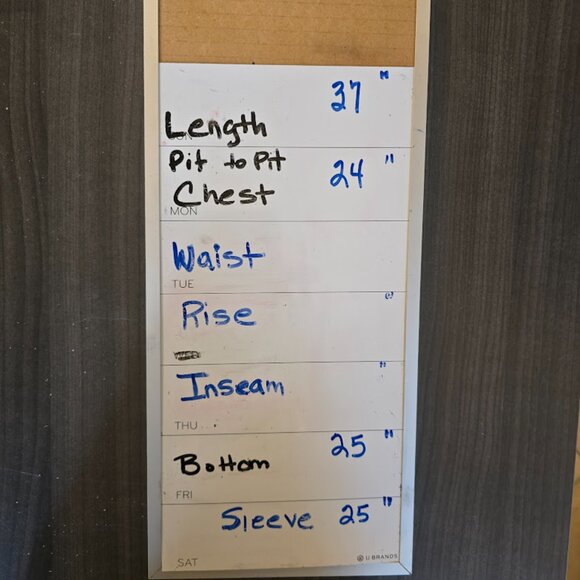 37 "
Length
Pit to Pit
24 "
Chest
MON
Waist
TUE
Rise "
Inseam "
THU
25 "
Bottom
FRI
Sleeve 25 "
SAT
U BRANDS